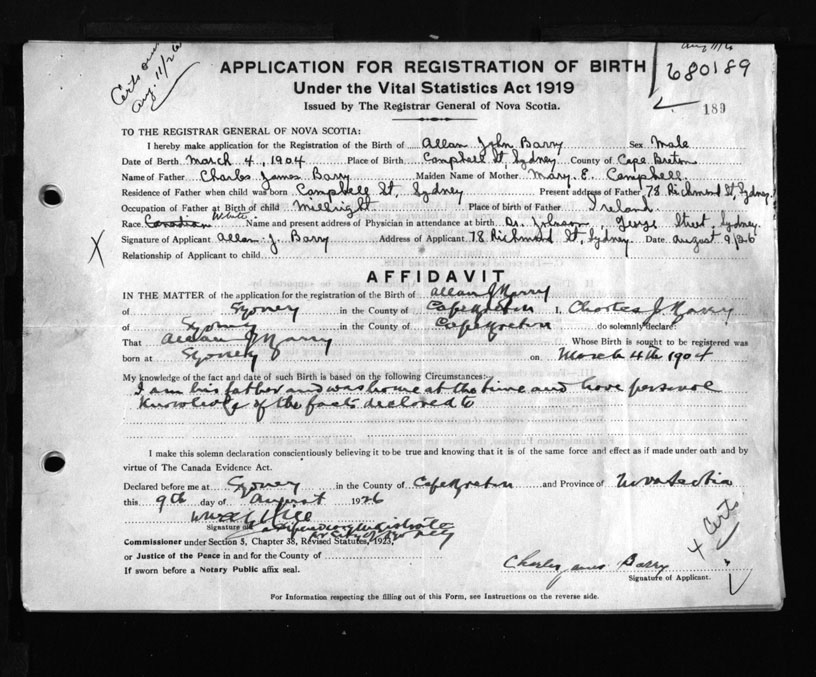 Aug 11/26
APPLICATION FOR REGISTRATION OF BIRTH
680189
Under the Vital Statistics Act 1919
Certs
Aug. 11/26
Issued by The Registrar General of Nova Scotia.
189
TO THE REGISTRAR GENERAL OF NOVA SCOTIA:
I hereby make application for the Registration of the Birth of Allan John Barry Sex Male
Date of Birth March 4, 1904 Place of Birth Campbell St, Sydney County of Cape Breton
Name of Father Charles James Barry Maiden Name of Mother Mary E. Campbell.
Residence of Father when child was born Campbell St, Sydney Present address of Father 78 Richmond St, Sydney
Occupation of Father at Birth of child Millright Place of birth of Father Ireland
Race Canadian White Name and present address of Physician in attendance at birth Dr. Johnson, George Street, Sydney.
Signature of Applicant Allan J. Barry Address of Applicant 78 Richmond St, Sydney Date August 9/26
X
Relationship of Applicant to child
AFFIDAVIT
IN THE MATTER of the application for the registration of the Birth of Allan J Barry
of Sydney in the County of Cape Breton I, Charles J Barry
of Sydney in the County of Cape Breton do solemnly declare:
That Allan J Barry Whose Birth is sought to be registered was
born at Sydney on March 4th 1904
My knowledge of the fact and date of such Birth is based on the following Circumstances:-
I am his father and was home at the time and have personal
Knowledge of the facts declared to
I make this solemn declaration conscientiously believing it to be true and knowing that it is of the same force and effect as if made under oath and by
virtue of The Canada Evidence Act.
Declared before me at Sydney in the County of Cape Breton and Province of Nova Scotia
this 9th day of August 1926
Signature of
Commissioner under Section 5, Chapter 38, Revised Statutes, 1923,
or Justice of the Peace in and for the County of
4 Certs
If sworn before a Notary Public affix seal.
Charles James Barry
Signature of Applicant.
For Information respecting the filling out of this Form, see Instructions on the reverse side.